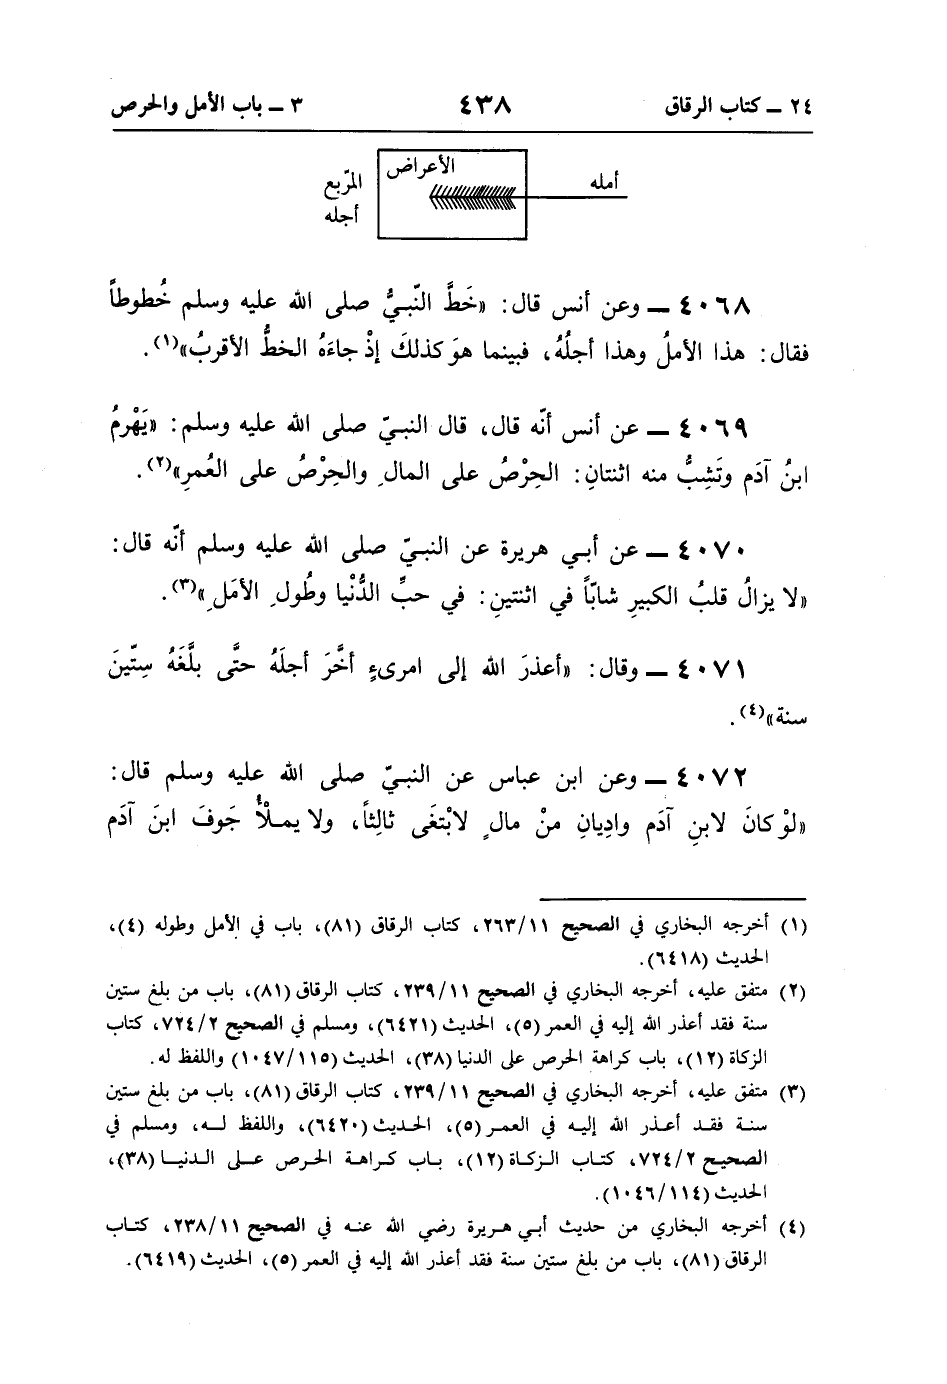 ٢٤ ــ كتاب الرقاق ٤٣٨ ٣ ــ باب الأمل والحرص
أمله الأعراض المرّبع
أجله
٤٠٦٨ ــ وعن أنس قال: «خَطَّ النّبيُّ صلى الله عليه وسلم خُطوطاً
فقال: هذا الأملُ وهذا أجلُهُ، فبينما هوَ كذلكَ إذْ جاءَهُ الخطُّ الأقربُ»(١).
٤٠٦٩ ــ عن أنس أنّه قال، قال النبيّ صلى الله عليه وسلم: «يَهْرمُ
ابنُ آدَم وتَشِبُّ منه اثنتانِ: الحِرْصُ على المالِ والحِرْصُ على العُمرِ»(٢).
٤٠٧٠ ــ عن أبي هريرة عن النبيّ صلى الله عليه وسلم أنّه قال:
«لا يزالُ قلبُ الكبيرِ شابّاً في اثنتينِ: في حبِّ الدُّنْيا وطُولِ الأمَلِ»(٣).
٤٠٧١ ــ وقال: «أعذرَ الله إلى امرىءٍ أخَّرَ أجلَهُ حتَّى بلَّغَهُ سِتّينَ
سنة»(٤).
٤٠٧٢ ــ وعن ابن عباس عن النبيّ صلى الله عليه وسلم قال:
«لوْ كانَ لابنِ آدَم وادِيانِ منْ مالٍ لابْتغَى ثالِثاً، ولا يمـلْأُ جَوفَ ابنَ آدَم
(١) أخرجه البخاري في الصحيح ٢٦٣/١١، كتاب الرقاق (٨١)، باب في الأمل وطوله (٤)،
الحديث (٦٤١٨).
(٢) متفق عليه، أخرجه البخاري في الصحيح ٢٣٩/١١، كتاب الرقاق (٨١)، باب من بلغ ستين
سنة فقد أعذر الله إليه في العمر (٥)، الحديث (٦٤٢١)، ومسلم في الصحيح ٧٢٤/٢، كتاب
الزكاة (١٢)، باب كراهة الحرص على الدنيا (٣٨)، الحديث (١٠٤٧/١١٥) واللفظ له.
(٣) متفق عليه، أخرجه البخاري في الصحيح ٢٣٩/١١، كتاب الرقاق (٨١)، باب من بلغ ستين
سنـة فقـد أعـذر الله إليـه في العمـر (٥)، الحـديث (٦٤٢٠)، واللفظ لـه، ومسلم في
الصحيـح ٧٢٤/٢، كتـاب الـزكـاة (١٢)، بـاب كـراهـة الحـرص عـلى الـدنيـا (٣٨)،
الحديث (١٠٤٦/١١٤).
(٤) أخرجه البخاري من حديث أبـي هـريرة رضي الله عنـه في الصحيح ٢٣٨/١١، كتـاب
الرقاق (٨١)، باب من بلغ ستين سنة فقد أعذر الله إليه في العمر (٥)، الحديث (٦٤١٩).